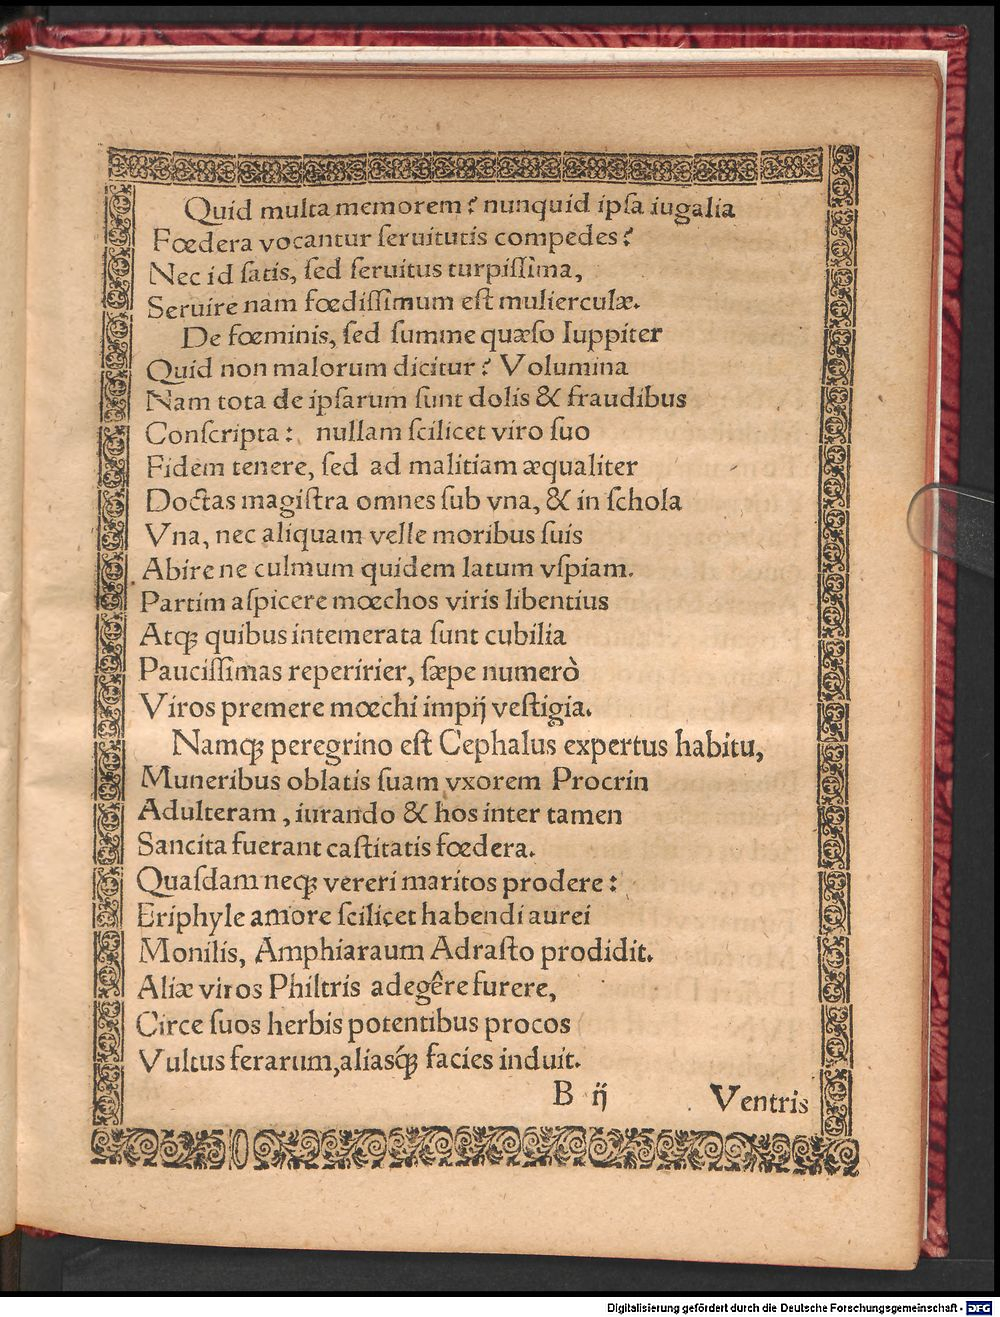 Quid multa memorem? nunquid ipſa iugalia
Fœdera vocantur ſeruitutis compedes?
Nec id ſatis, ſed ſeruitus turpiſſima,
Seruire nam fœdiſſimum eſt mulierculæ.
De fœminis, ſed ſumme quæſo Iuppiter
Quid non malorum dicitur? Volumina
Nam tota de ipſarum ſunt dolis & fraudibus
Conſcripta: nullam ſcilicet viro ſuo
Fidem tenere, ſed ad malitiam æqualiter
Doctas magiſtra omnes ſub vna, & in ſchola
Vna, nec aliquam velle moribus ſuis
Abire ne culmum quidem latum vſpiam.
Partim aſpicere mœchos viris libentius
Atq; quibus intemerata ſunt cubilia
Pauciſſimas reperirier, ſæpe numerò
Viros premere mœchi impij veſtigia.
Namq; peregrino eſt Cephalus expertus habitu,
Muneribus oblatis ſuam vxorem Procrin
Adulteram, iurando & hos inter tamen
Sancita fuerant caſtitatis fœdera.
Quaſdam neq; vereri maritos prodere:
Eriphyle amore ſcilicet habendi aurei
Monilis, Amphiaraum Adraſto prodidit.
Aliæ viros Philtris adegêre furere,
Circe ſuos herbis potentibus procos
Vultus ferarum, aliasq́; facies induit.
B ij Ventris
Digitalisierung gefördert durch die Deutsche Forschungsgemeinschaft - DFG